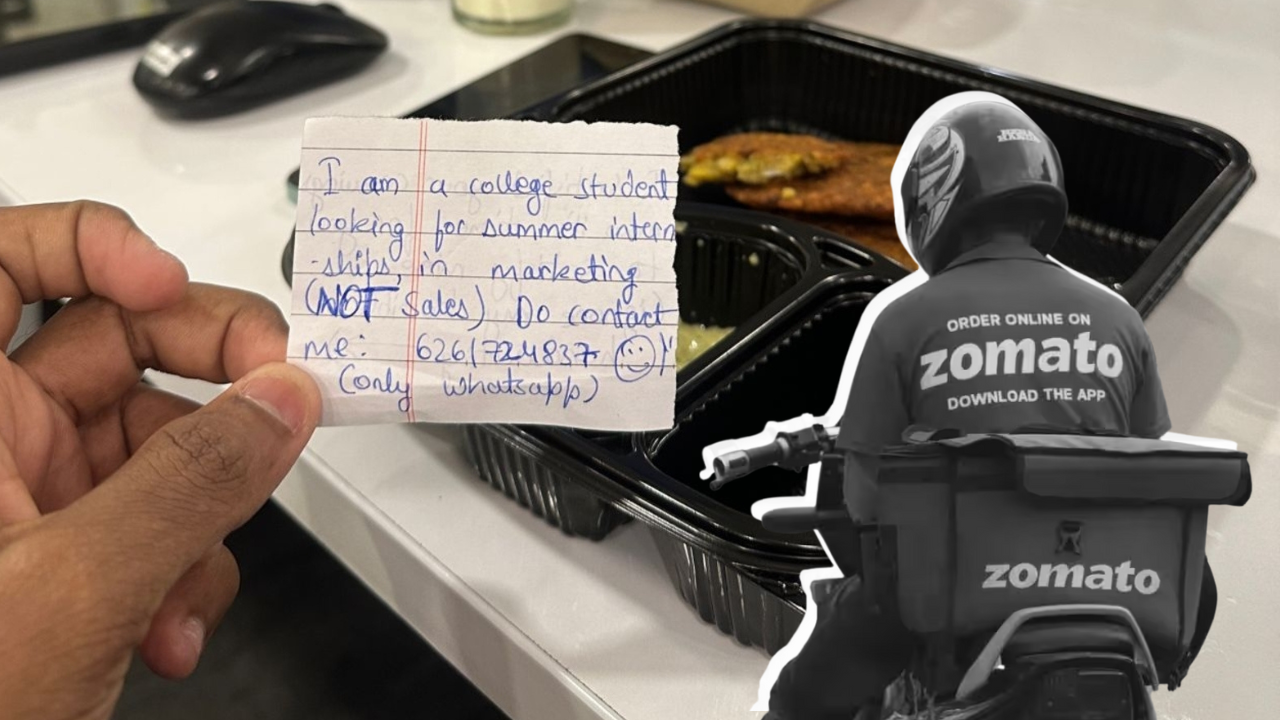 I am a college student
looking for summer intern
-ships, in marketing
(NOT Sales) Do contact
me: 6261724837
(only whatsapp)
ORDER ONLINE ON
zomato
DOWNLOAD THE APP
zomato